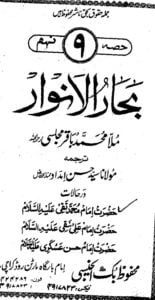 جملہ حقوق بحق ناشر محفوظ ہیں
حصہ ۹ نہم
بحار الانوار
ملا محمد باقر مجلسی
ترجمہ
مولانا سید حسن امداد
در حالات
حضرت امام محمد تقی علیہ السلام
حضرت امام علی نقی علیہ السلام
حضرت امام حسن عسکری علیہ السلام
محفوظ بک ایجنسی
امام بارگاہ مارٹن روڈ کراچی